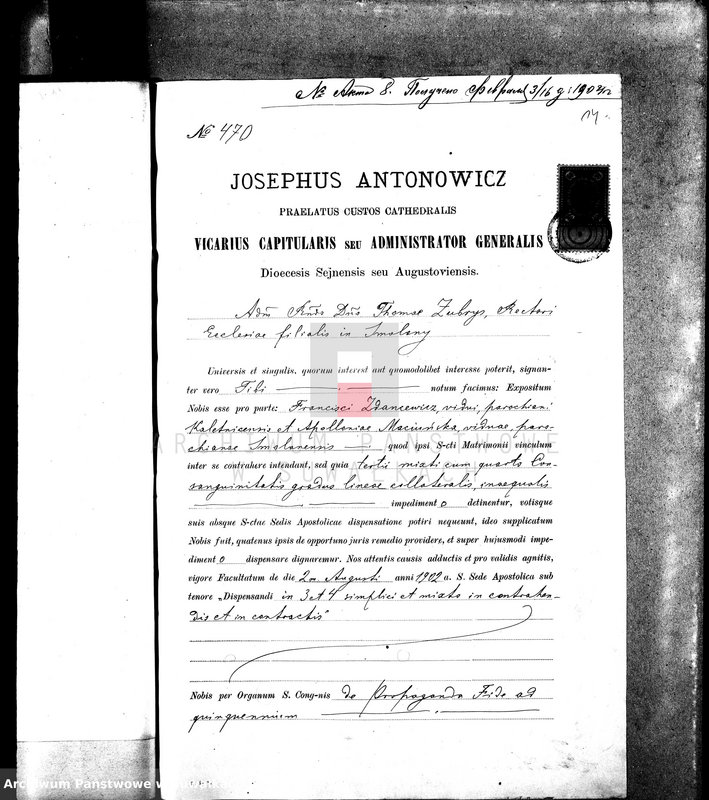 № Акта 8. Получено Февраля 3/16 д: 1904 г.
14.
№ 470
JOSEPHUS ANTONOWICZ
PRAELATUS CUSTOS CATHEDRALIS
VICARIUS CAPITULARIS SEU ADMINISTRATOR GENERALIS
Dioecesis Sejnensis seu Augustoviensis.
Adm Rndo Dno Thomae Zubrys, Rectori
Ecclesiae filialis in Smolany
Universis et singulis, quorum interest aut quomodolibet interesse poterit, signan-
ter vero Tibi notum facimus: Expositum
Nobis esse pro parte: Francisci Zdancewicz, vidui, parochiani
Kaletnicensis et Apolloniae Maciuńska, viduae, paro-
chianae Smolanensis quod ipsi S-cti Matrimonii vinculum
inter se contrahere intendant, sed quia tertii mixti cum quarto Con-
sanguinitatis gradus lineae collateralis inaequalis
impedimento detinentur, votisque
suis absque S-ctae Sedis Apostolicae dispensatione potiri nequeunt, ideo supplicatum
Nobis fuit, quatenus ipsis de opportuno juris remedio providere, et super hujusmodi impe-
dimento dispensare dignaremur. Nos attentis causis adductis et pro validis agnitis,
vigore Facultatum de die 2 m. Augusti anni 1902 a. S. Sede Apostolica sub
tenore „Dispensandi in 3 et 4 simplici et mixto in contrahen-
dis et in contractis"
Nobis per Organum S. Cong-nis de Propaganda Fide ad
quinquennium
ARCHIWUM PAŃSTWOWE
W SUWAŁKACH
Archiwum Państwowe w Suwałkach